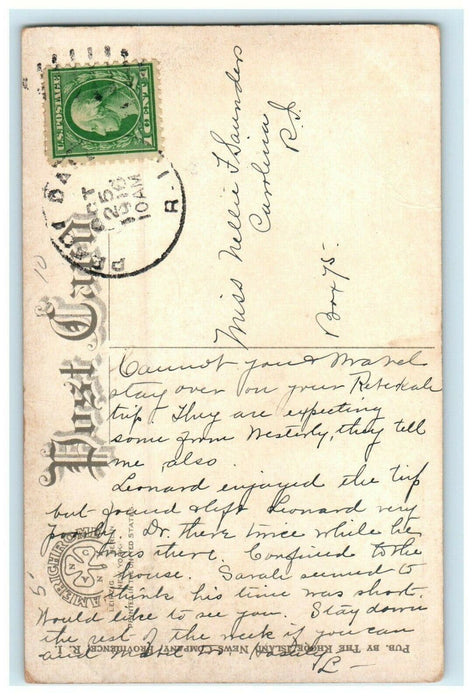 U.S. POSTAGE
1 CENT 1
PEACE DALE
OCT
25
10 AM
R.I.
10
Post Card
Miss Nellie F Saunders
Carolina
R.I.
Box 75-
Cannot you & Mabel
stay over on your Rebekah
trip. They are expecting
some from Westerly, they tell
me also.
Leonard enjoyed the trip
but found Leonard very
poorly. Dr. there twice while he
was there. Confined to the
house. Sarah seemed to
think his time was short.
Would like to see you. Stay down
the rest of the week if you can
and
L-
AMERICHROME
A N C
PUB. BY THE RHODE ISLAND NEWS COMPANY, PROVIDENCE, R. I.